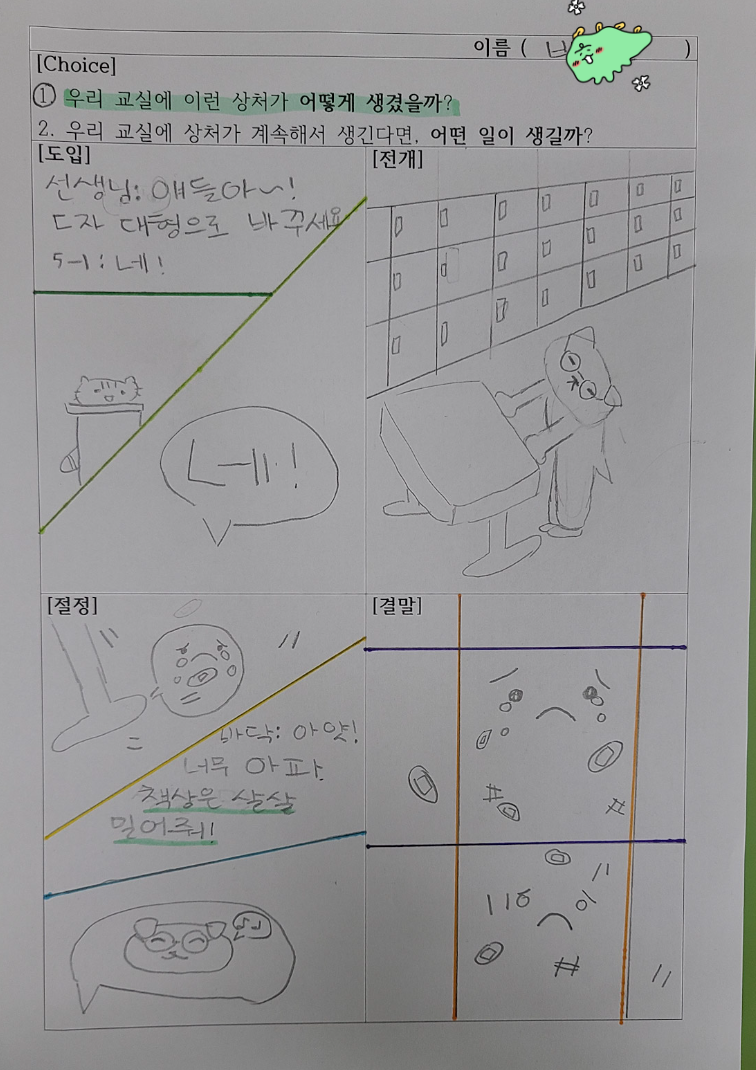 이름 ( )
[Choice]
① 우리 교실에 이런 상처가 어떻게 생겼을까?
2. 우리 교실에 상처가 계속해서 생긴다면, 어떤 일이 생길까?
[도입]
선생님: 얘들아~!
ㄷ자 대형으로 바꾸세요
5-1: 네!
네!
[전개]
[절정]
바닥: 아얏!
너무 아파.
책상은 살살
밀어줘!
[결말]